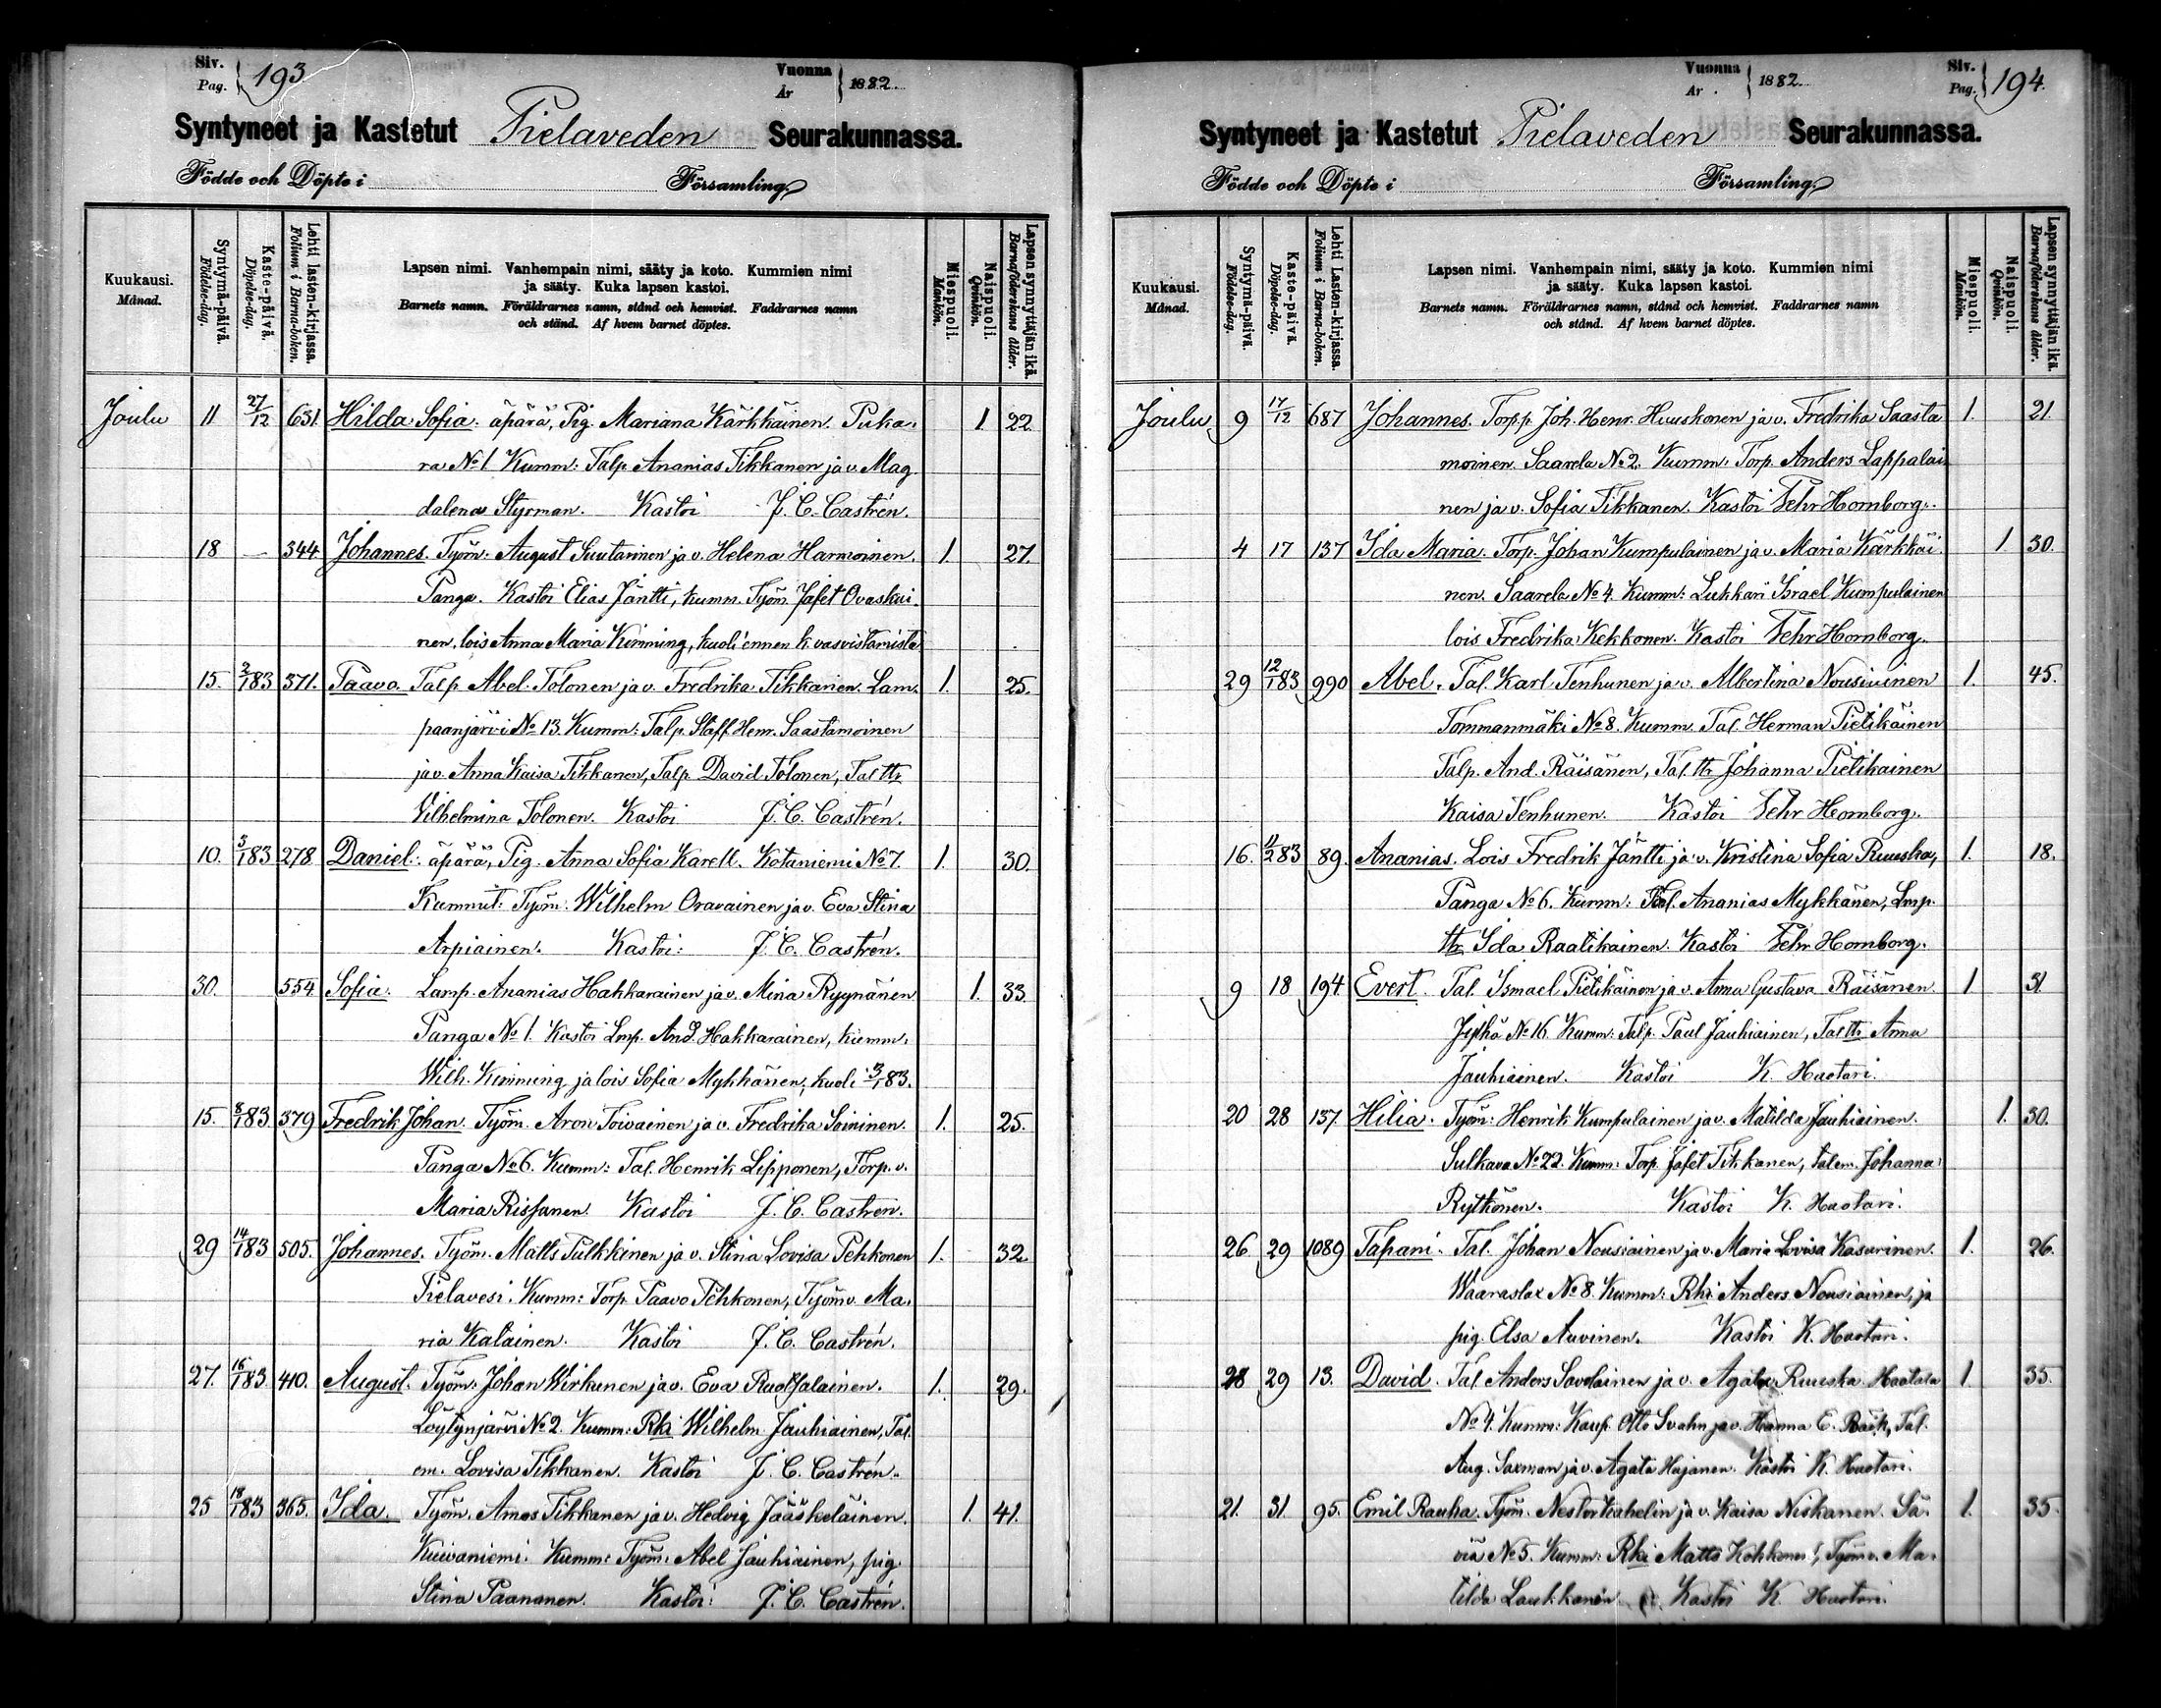 Siv.
Pag. 193
Vuonna
År 1882.
Syntyneet ja Kastetut Pielaveden Seurakunnassa.
Födde och Döpte i Församling.
Kuukausi.
Månad.
Syntymä-päivä.
Födelse-dag.
Kaste-päivä.
Döpelse-dag.
Lehti lasten-kirjassa.
Folium i Barna-boken.
Lapsen nimi. Vanhempain nimi, sääty ja koto. Kummien nimi
ja sääty. Kuka lapsen kastoi.
Barnets namn. Föräldrarnes namn, stånd och hemvist. Faddrarnes namn
och stånd. Af hvem barnet döptes.
Miespuoli.
Mankön.
Naispuoli.
Qvinkön.
Lapsen synnyttäjän ikä.
Barnaföderskans ålder.
Joulu 11 27/12 631 Hilda Sofia. äpärä, Pig. Mariana Kärkkäinen. Puka- 1. 22.
ra No 1 Kumm: Talp. Ananias Tikkanen ja v. Mag
dalena Styrman. Kastoi J. C. Castrén.
18 — 344 Johannes. Työm: August Suutarinen ja v. Helena Harmoinen. 1. 27.
Panga. Kastoi Elias Jäntti, kumm. Työm. Jafet Ovaskai-
nen, lois Anna Maria Kimming, kuoli ennen k. vasvistamista
15. 3/1 83 371. Taavo. Talp. Abel Tolonen ja v. Fredrika Tikkanen. Lam- 1. 25.
paanjärvi No 13. Kumm: Talp. Staff. Henr. Saastamoinen
ja v. Anna Kaisa Tikkanen, Talp. David Tolonen, Tal. ttr
Vilhelmina Tolonen. Kastoi J. C. Castrén.
10. 3/1 83 278 Daniel. äpärä, Pig. Anna Sofia Karell. Kotaniemi No 7. 1. 30.
Kummit: Työm. Wilhelm Oravainen ja v. Eva Stina
Arpiainen. Kastoi: J. C. Castrén.
30. 554 Sofia. Lamp. Ananias Hakkarainen ja v. Mina Ryynänen 1. 33.
Panga No 1. Kastoi Lmp. And. Hakkarainen, kumm.
Wilh. Kimming ja lois Sofia Mykkänen, kuoli 3/1 83.
15. 8/1 83 379 Fredrik Johan. Työm. Aron Toivainen ja v. Fredrika Soininen. 1. 25.
Panga No 6. Kumm: Tal. Henrik Lipponen, Torp. v.
Maria Rissanen. Kastoi J. C. Castrén.
29 14/1 83 505. Johannes. Työm. Matts Pulkkinen ja v. Stina Lovisa Pehkonen 1. 32.
Pielavesi. Kumm: Torp. Paavo Pehkonen, Työm v. Ma-
ria Kalainen. Kastoi J. C. Castrén.
27. 16/1 83. 410. August. Työm: Johan Wirkunen ja v. Eva Ruotsalainen. 1. 29.
Löytynjärvi No 2. Kumm: Rki Wilhelm Jauhiainen, Tal.
em. Lovisa Tikkanen. Kastoi J. C. Castrén.
25 18/1 83 365. Ida. Työm. Amos Tikkanen ja v. Hedvig Jääskeläinen. 1. 41.
Kuivaniemi. Kumm: Työm. Abel Jauhiainen, pig.
Stina Paananen. Kastoi: J. C. Castrén.
Vuonna
År 1882.
Siv.
Pag. 194.
Syntyneet ja Kastetut Pielaveden Seurakunnassa.
Födde och Döpte i Församling.
Kuukausi.
Månad.
Syntymä-päivä.
Födelse-dag.
Kaste-päivä.
Döpelse-dag.
Lehti Lasten-kirjassa.
Folium i Barna-boken.
Lapsen nimi. Vanhempain nimi, sääty ja koto. Kummien nimi
ja sääty. Kuka lapsen kastoi.
Barnets namn. Föräldrarnes namn, stånd och hemvist. Faddrarnes namn
och stånd. Af hvem barnet döptes.
Miespuoli.
Mankön.
Naispuoli.
Qvinkön.
Lapsen synnyttäjän ikä.
Barnaföderskans ålder.
Joulu 9 17/12 687 Johannes. Torpp. Joh. Henr. Huuskonen ja v. Fredrika Saasta 1. 21.
moinen. Saarela No 2. Kumm. Torp. Anders Lappalai
nen ja v. Sofia Tikkanen. Kastoi Fehr Hornborg.
4 17 137 Ida Maria. Torp. Johan Kumpulainen ja v. Maria Kärkkäi- 1 30.
nen. Saarela No 4. Kumm: Lukkari Israel Kumpulainen
lois Fredrika Kekkonen. Kastoi Fehr Hornborg.
29 12/1 83 990 Abel. Tal. Karl Tenhunen ja v. Albertina Nousiainen 1. 45.
Tommanmäki No 8. Kumm. Tal. Herman Pietikäinen
Talp. And. Räisänen, Tal. ttr Johanna Pietikäinen
Kaisa Tenhunen. Kastoi Fehr Hornborg.
16. 11/2 83 89. Ananias. Lois Fredrik Jäntti ja v. Kristina Sofia Ruuska, 1. 18.
Panga No 6. Kumm: Tal. Ananias Mykkänen, Lmp.
ttr Ida Raatikainen. Kastoi Fehr Hornborg.
9 18 194 Evert. Tal. Ismael Pietikäinen ja v. Anna Gustava Räisänen. 1 31.
Jylhä No 16. Kumm: Talp. Paul Jauhiainen, Tal ttr Anna
Jauhiainen. Kastoi K. Haotari.
20 28 137. Hilia. Työm: Henrik Kumpulainen ja v. Matilda Jauhiainen. 1. 30.
Sulkava No 22. Kumm: Torp. Jafet Tikkanen, tal em. Johanna
Rytkönen. Kastoi K. Haotari.
26 29 1089 Tapani. Tal. Johan Nousiainen ja v. Maria Lovisa Kasurinen. 1. 26.
Waaraslax No 8. Kumm: Rki Anders Nousiainen, ja
pig. Elsa Auvinen. Kastoi K. Haotari.
28 29 13. David. Tal. Anders Savolainen ja v. Agata Ruuska. Haatala 1 35.
No 4. Kumm: Kaup. Otto Svahn ja v. Hanna E. Bäck, Tal.
Aug. Saxman ja v. Agata Hujanen. Kastoi K. Haotari.
21. 31. 95. Emil Rauha. Työm. Nestor Kahelin ja v. Kaisa Niskanen. Sä- 1. 35.
viä No 5. Kumm: Rki Matts Kohkonen, Työm v. Ma-
tilda Laukkanen. Kastoi K. Haotari.